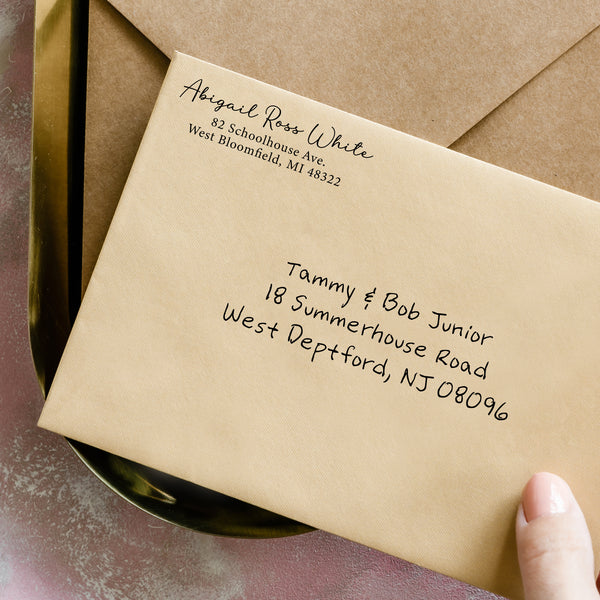 Abigail Ross White
82 Schoolhouse Ave.
West Bloomfield, MI 48322
Tammy & Bob Junior
18 Summerhouse Road
West Deptford, NJ 08096